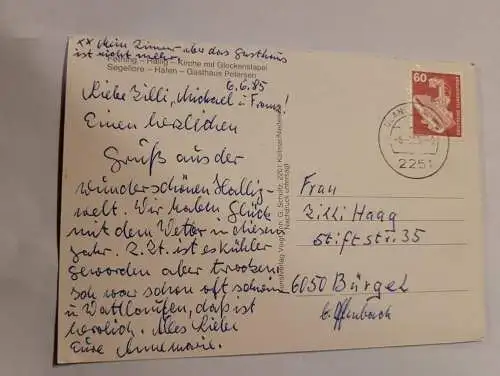 xx Mein Zimmer aber das Gasthaus
ist nicht mehr.
Pellworm – Hallig – Kirche mit Glockenstapel
Segellore – Hafen – Gasthaus Petersen
6.6.85
Liebe Zilli, Michael u Franz!
Einen herzlichen
Gruß aus der
wunderschönen Hallig-
welt. Wir haben Glück
mit dem Wetter in diesem
Jahr. Z. Zt. ist es kühler
geworden aber trocken
ich war schon oft
u Wattlaufen, daß ist
herrlich. Alles Liebe
Eure Annemarie.
60
DEUTSCHE BUNDESPOST
2251
G. Schultz, 2201
Nachdruck untersagt
Frau
Zilli Haag
Stiftstr. 35
6050 Bürgel
b. Offenbach